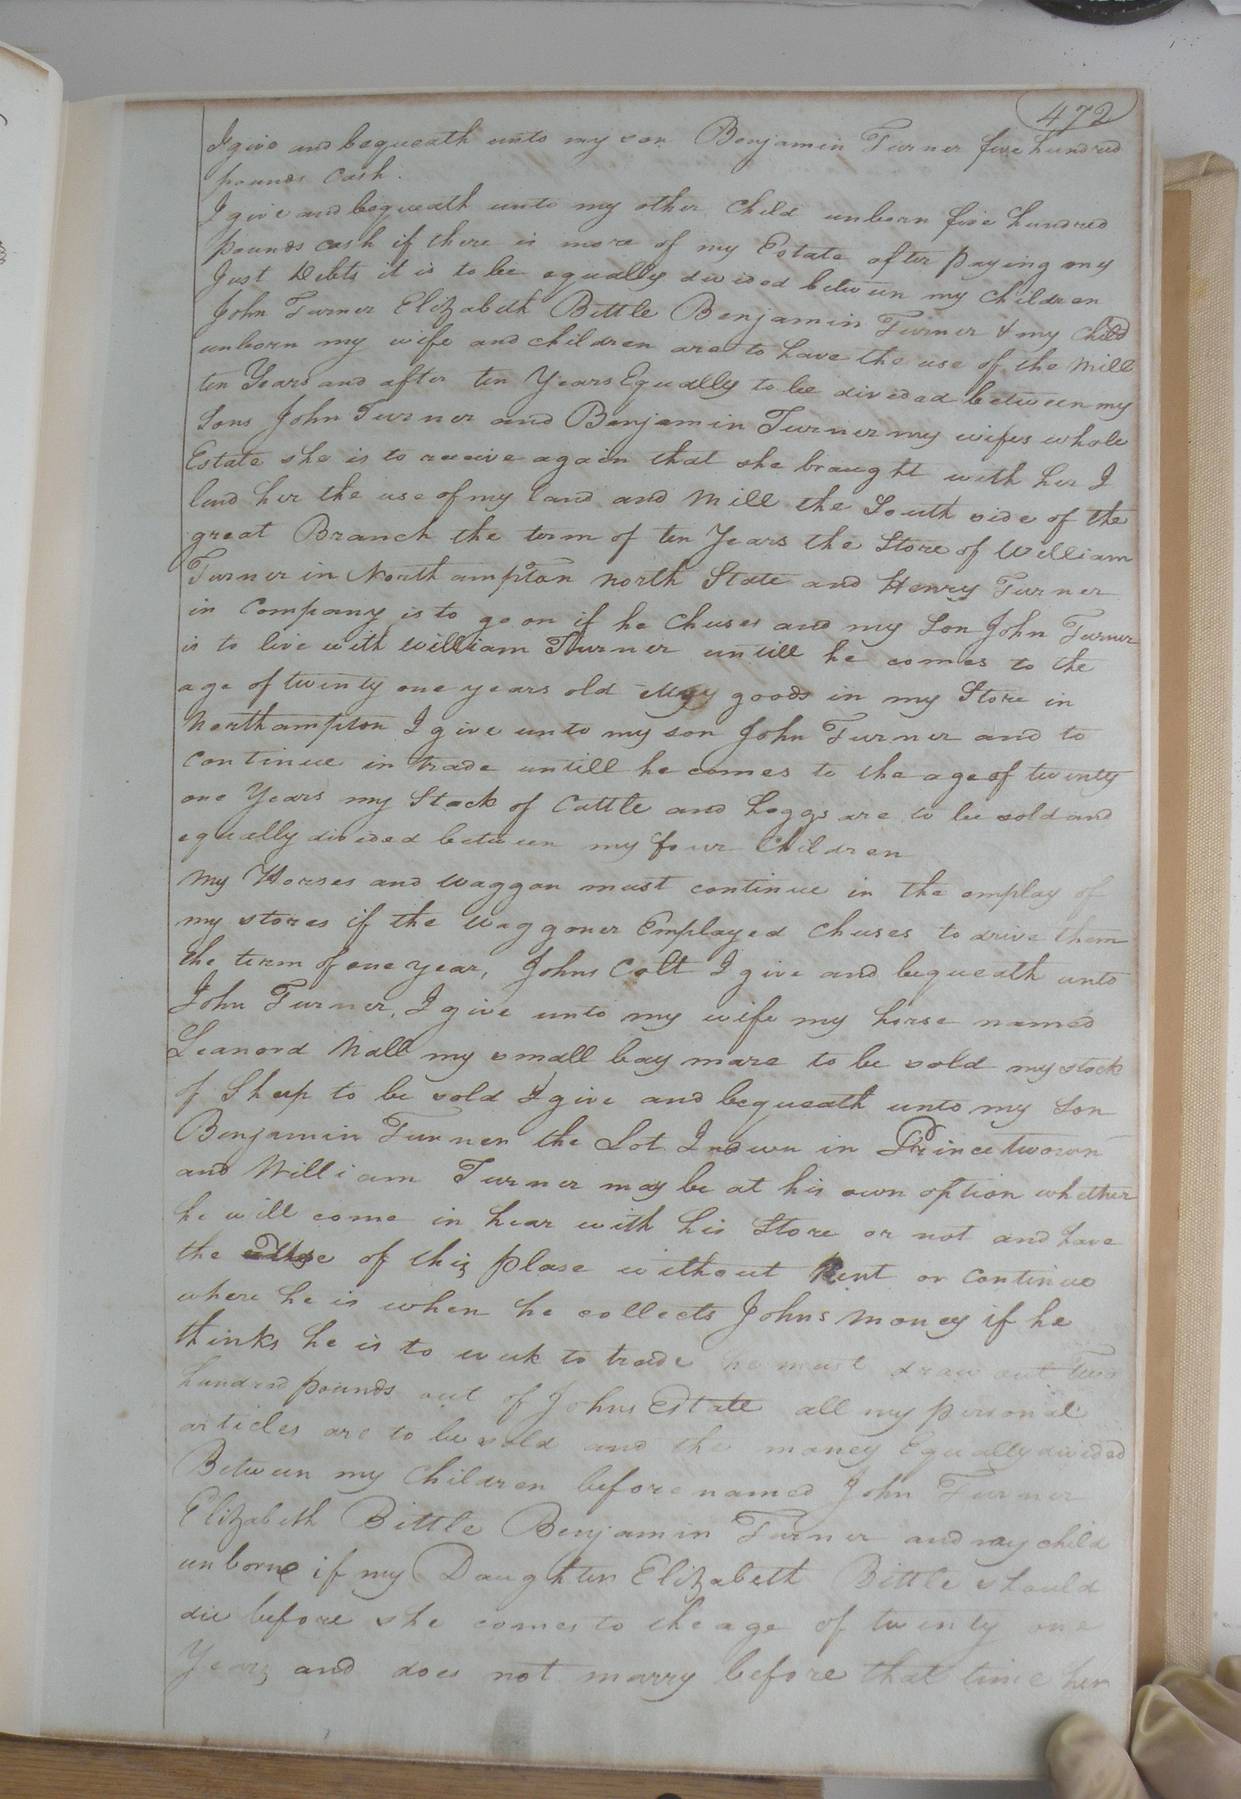 472
I give and bequeath unto my son Benjamin Turner five hundred
pounds Cash.
I give and bequeath unto my other Child unborn five hundred
pounds cash if there is more of my Estate after paying my
Just Debts it is to be equally divided between my Children
John Turner Elizabeth Bittle Benjamin Turner & my Child
unborn my wife and children are to have the use of the Mill
ten Years and after ten Years Equally to be divided between my
Sons John Turner and Benjamin Turner my wifes whole
Estate she is to receive again that she braught with her I
lend her the use of my land and Mill the South side of the
great Branch the term of ten Years the Store of William
Turner in Northampton north State and Henry Turner
in Company is to go on if he Chuses and my Son John Turner
is to live with William Turner untill he comes to the
age of twenty one years old My goods in my Store in
Northampton I give unto my son John Turner and to
Continue in trade untill he comes to the age of twenty
one Years my Stack of Cattle and hoggs are to be sold and
equally divided between my four Children
My Horses and Waggan must continue in the employ of
my stores if the Waggoner Employed Chuses to drive them
the term of one year, Johns Colt I give and bequeath unto
John Turner, I give unto my wife my horse named
Leanord Nall my small bay mare to be sold my stock
of Sheep to be sold I give and bequeath unto my Son
Benjamin Turner the Lot I in Princetwown
and William Turner may be at his own option whether
he will come in hear with his Store or not and have
the use of this plase without Rent or Continue
where he is when he collects Johns money if he
thinks he is to weak to trade he must draw out two
hundred pounds out of Johns Estate all my personal
articles are to be sold and the money Equally divided
Between my Children before named John Turner
Elizabeth Bittle Benjamin Turner and my child
unborne if my Daughter Elizabeth Bittle should
die before she comes to the age of twenty one
Years and does not marry before that time her